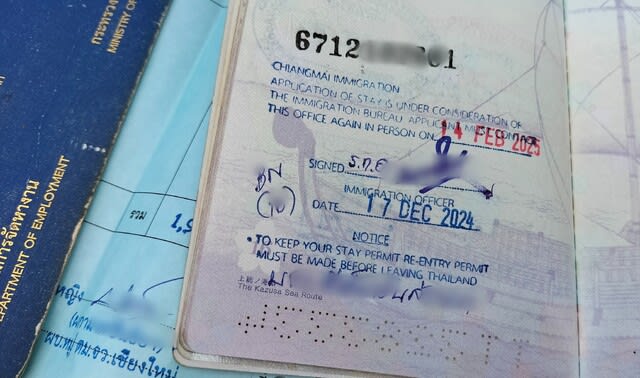 กระทรวง
MINISTRY O
การจัดหางาน
DEPARTMENT OF EMPLOYMENT
รวม
1,9
ผบ.หมู่ ตม.จว.เชียงใหม่
6712 01
CHIANGMAI IMMIGRATION
APPLICATION OF STAY IS UNDER CONSIDERATION OF
THE IMMIGRATION BUREAU APPLICANT MUST CONTACT
THIS OFFICE AGAIN IN PERSON ON 14 FEB 2025
SIGNED
IMMIGRATION OFFICER
DATE 17 DEC 2024
NOTICE
• TO KEEP YOUR STAY PERMIT RE-ENTRY PERMIT
MUST BE MADE BEFORE LEAVING THAILAND
The Kazusa Sea Route